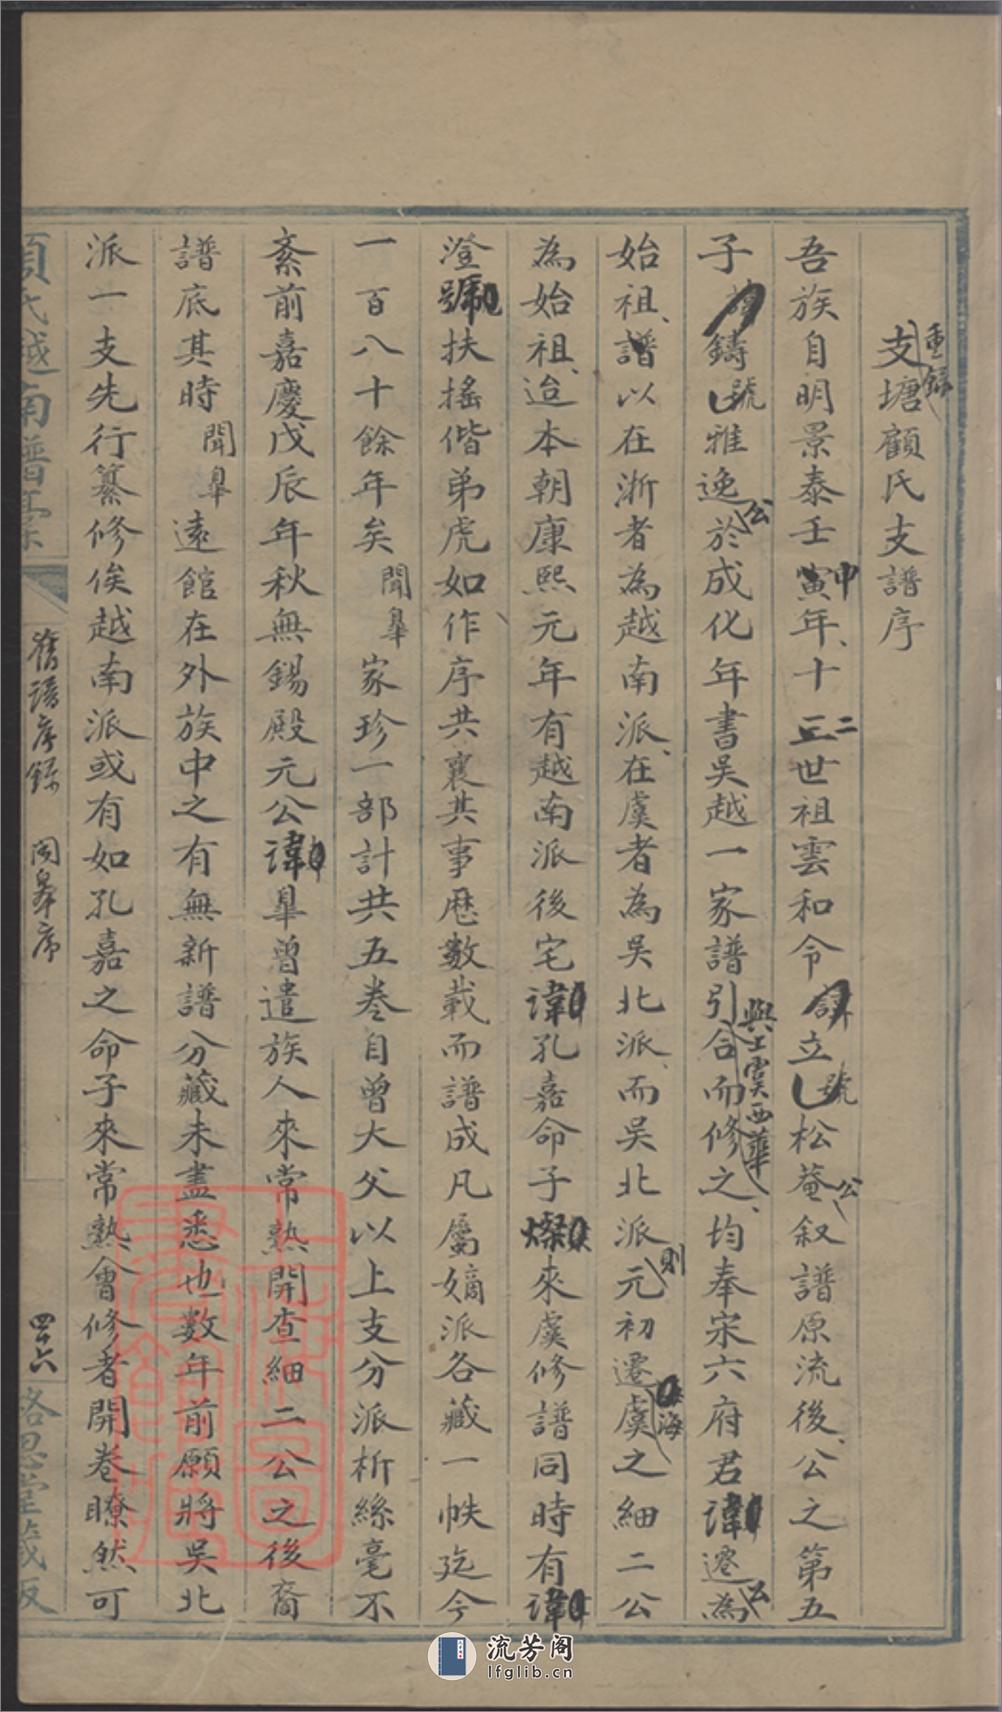 重錄
支塘顧氏支譜序
吾族自明景泰壬寅申年十三二世祖雲和令諱立號松菴公叙譜原流後公之第五
子諱鑄號雅逸公於成化年書吳越一家譜引合而修之與上虞西華均奉宋六府君諱遷公為
始祖譜以在浙者為越南派在虞者為吳北派而吳北派則元初遷海虞之細二公
為始祖迨本朝康熙元年有越南派後宅諱孔嘉命子燦來虞修譜同時有諱
澄號扶搖偕弟虎如作序共襄其事歷數載而譜成凡屬嫡派各藏一帙迄今
一百八十餘年矣聞臯家珍一部計共五卷自曾大父以上支分派析絲毫不
紊前嘉慶戊辰年秋無錫殿元公諱臯曾遣族人來常熟開查細二公之後裔
譜底其時聞臯遠館在外族中之有無新譜分藏未盡悉也數年前願將吳北
派一支先行纂修俟越南派或有如孔嘉之命子來常熟會修者開卷瞭然可
顧氏越南譜
舊譜序錄 聞臯序
四十六
裕恩堂藏板
流芳阁
lfglib.cn